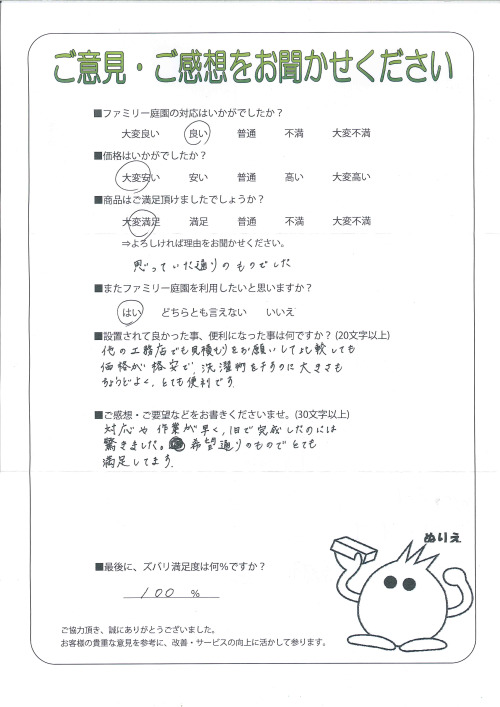 ご意見・ご感想をお聞かせください
■ファミリー庭園の対応はいかがでしたか？
大変良い 良い 普通 不満 大変不満
■価格はいかがでしたか？
大変安い 安い 普通 高い 大変高い
■商品はご満足頂けましたでしょうか？
大変満足 満足 普通 不満 大変不満
⇒よろしければ理由をお聞かせください。
思っていた通りのものでした
■またファミリー庭園を利用したいと思いますか？
はい どちらとも言えない いいえ
■設置されて良かった事、便利になった事は何ですか？(20文字以上)
他の工務店でも見積もりをお願いして比較しても
価格が格安で、洗濯物を干すのに大きさも
ちょうどよく、とても便利です。
■ご感想・ご要望などをお書きくださいませ。(30文字以上)
対応や作業が早く、1日で完成したのには
驚きました。希望通りのものでとても
満足してます。
ぬりえ
■最後に、ズバリ満足度は何％ですか？
100 %
ご協力頂き、誠にありがとうございました。
お客様の貴重な意見を参考に、改善・サービスの向上に活かして参ります。